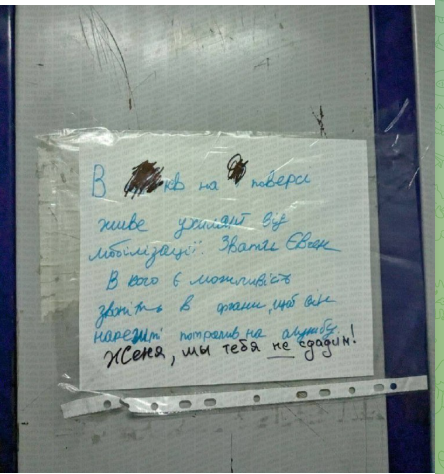 В кв на поверсі
живе ухилянт від
мобілізації. Звати Євген
В кого є можливість
дзвоніть в , щоб він
нарешті потрапив на службу.
Женя, мы тебя не сдадим!